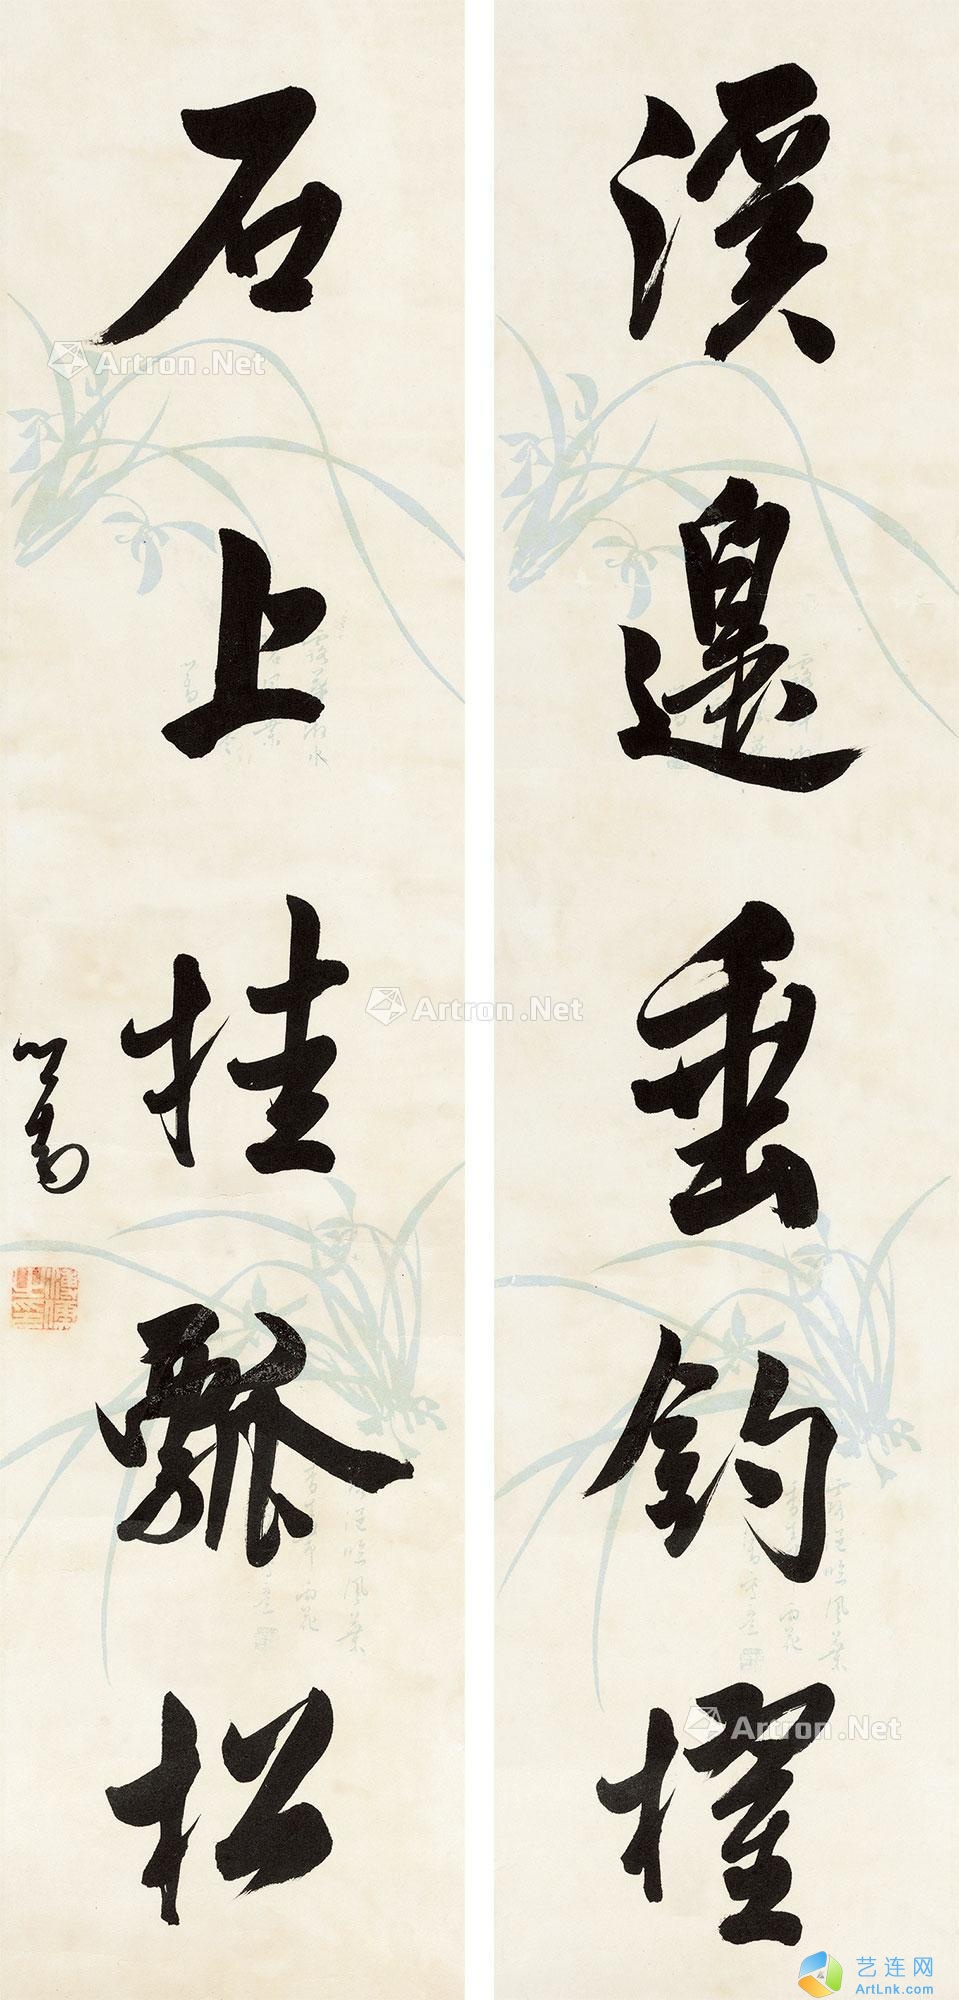 溪邊垂釣櫂
石上挂瓢松
心畬
溥儒之印
Artron.Net
Artron.Net
Artron.Net
艺连网
ArtLnk.com